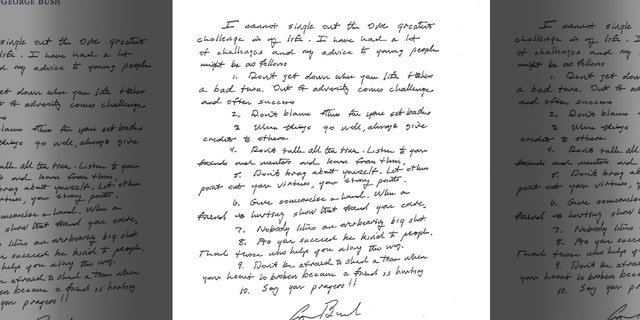 GEORGE BUSH
I cannot single out the one greatest
challenge in my life. I have had a lot
of challenges and my advice to young people
might be as follows
1. Don't get down when your life takes
a bad turn. Out of adversity comes challenge
and often success
2. Don't blame others for your setbacks
3. When things go well, always give
credit to others
4. Don't talk all the time. Listen to your
friends and mentors and learn from them,
5. Don't brag about yourself. Let others
point out your virtues, your strong points.
6. Give someone else a hand. When a
friend is hurting show that friend you care.
7. Nobody likes an overbearing big shot
8. As you succeed be kind to people.
Thank those who help you along the way.
9. Don't be afraid to shed a tear when
your heart is broken because a friend is hurting
10. Say your prayers!!
George Bush